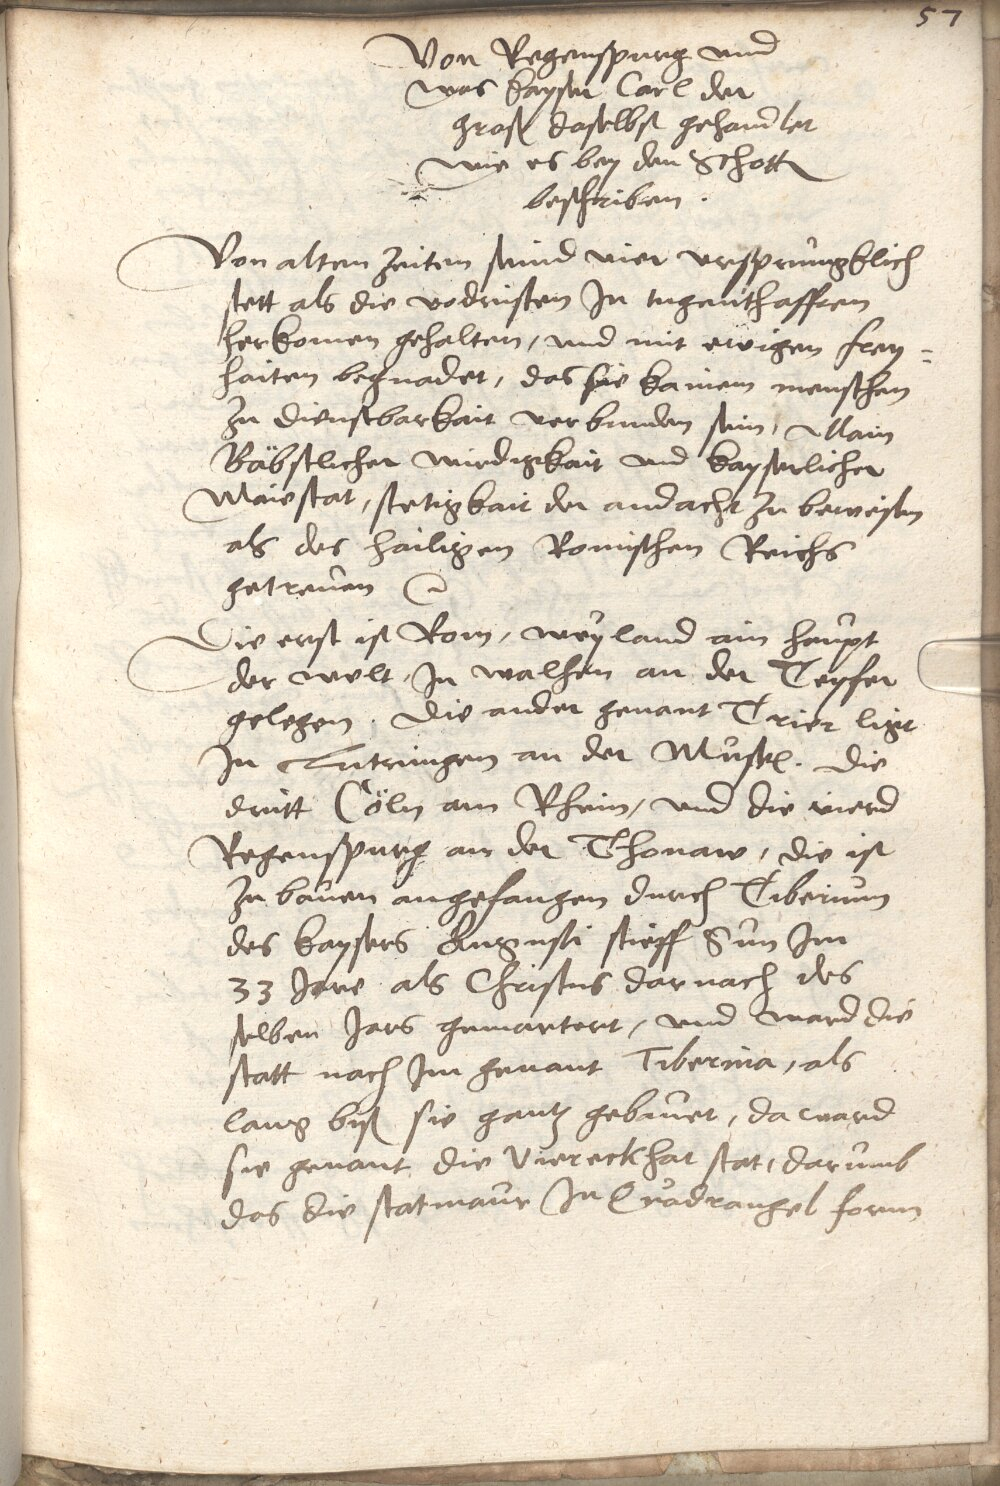 57
Von Regenspurg und
was kayser Carl der
groß daselbst gehandlet
wie es bey den Schott
beschriben.
Von alten Zeiten seind vier ursprungklich
stett als die vodristen In tugenthafften
herkomen gehalten, und mit ewigen frey=
haiten begnadet, das sie kainem menschen
zu dienstbarkait verbunden sein, Allain
Bäbstlicher wirdigkait und kayserlicher
Maiestat, stetigkait der andacht zu beweisen
als des hailigen Romischen Reichs
getreuen
Die erst ist Rom, weyland ain haupt
der welt, In walhen an der Teyfer
gelegen. Die ander genant Trier ligt
In Lutringen an der Musel. Die
dritt Cöln am Rhein, und die vierd
Regenspurg an der Thonaw, die ist
zu bauen angefangen durch Tiberium
des kaysers Augusti stieff Sun Im
33 Jare als Christus darnach des
selben Jars gemartert, und ward die
statt nach Im genant Tiberina, als
lang biß sie gantz gebauet, da ward
sie genant die Viereckhat stat, darumb
das die statmaur In Quadrangel form